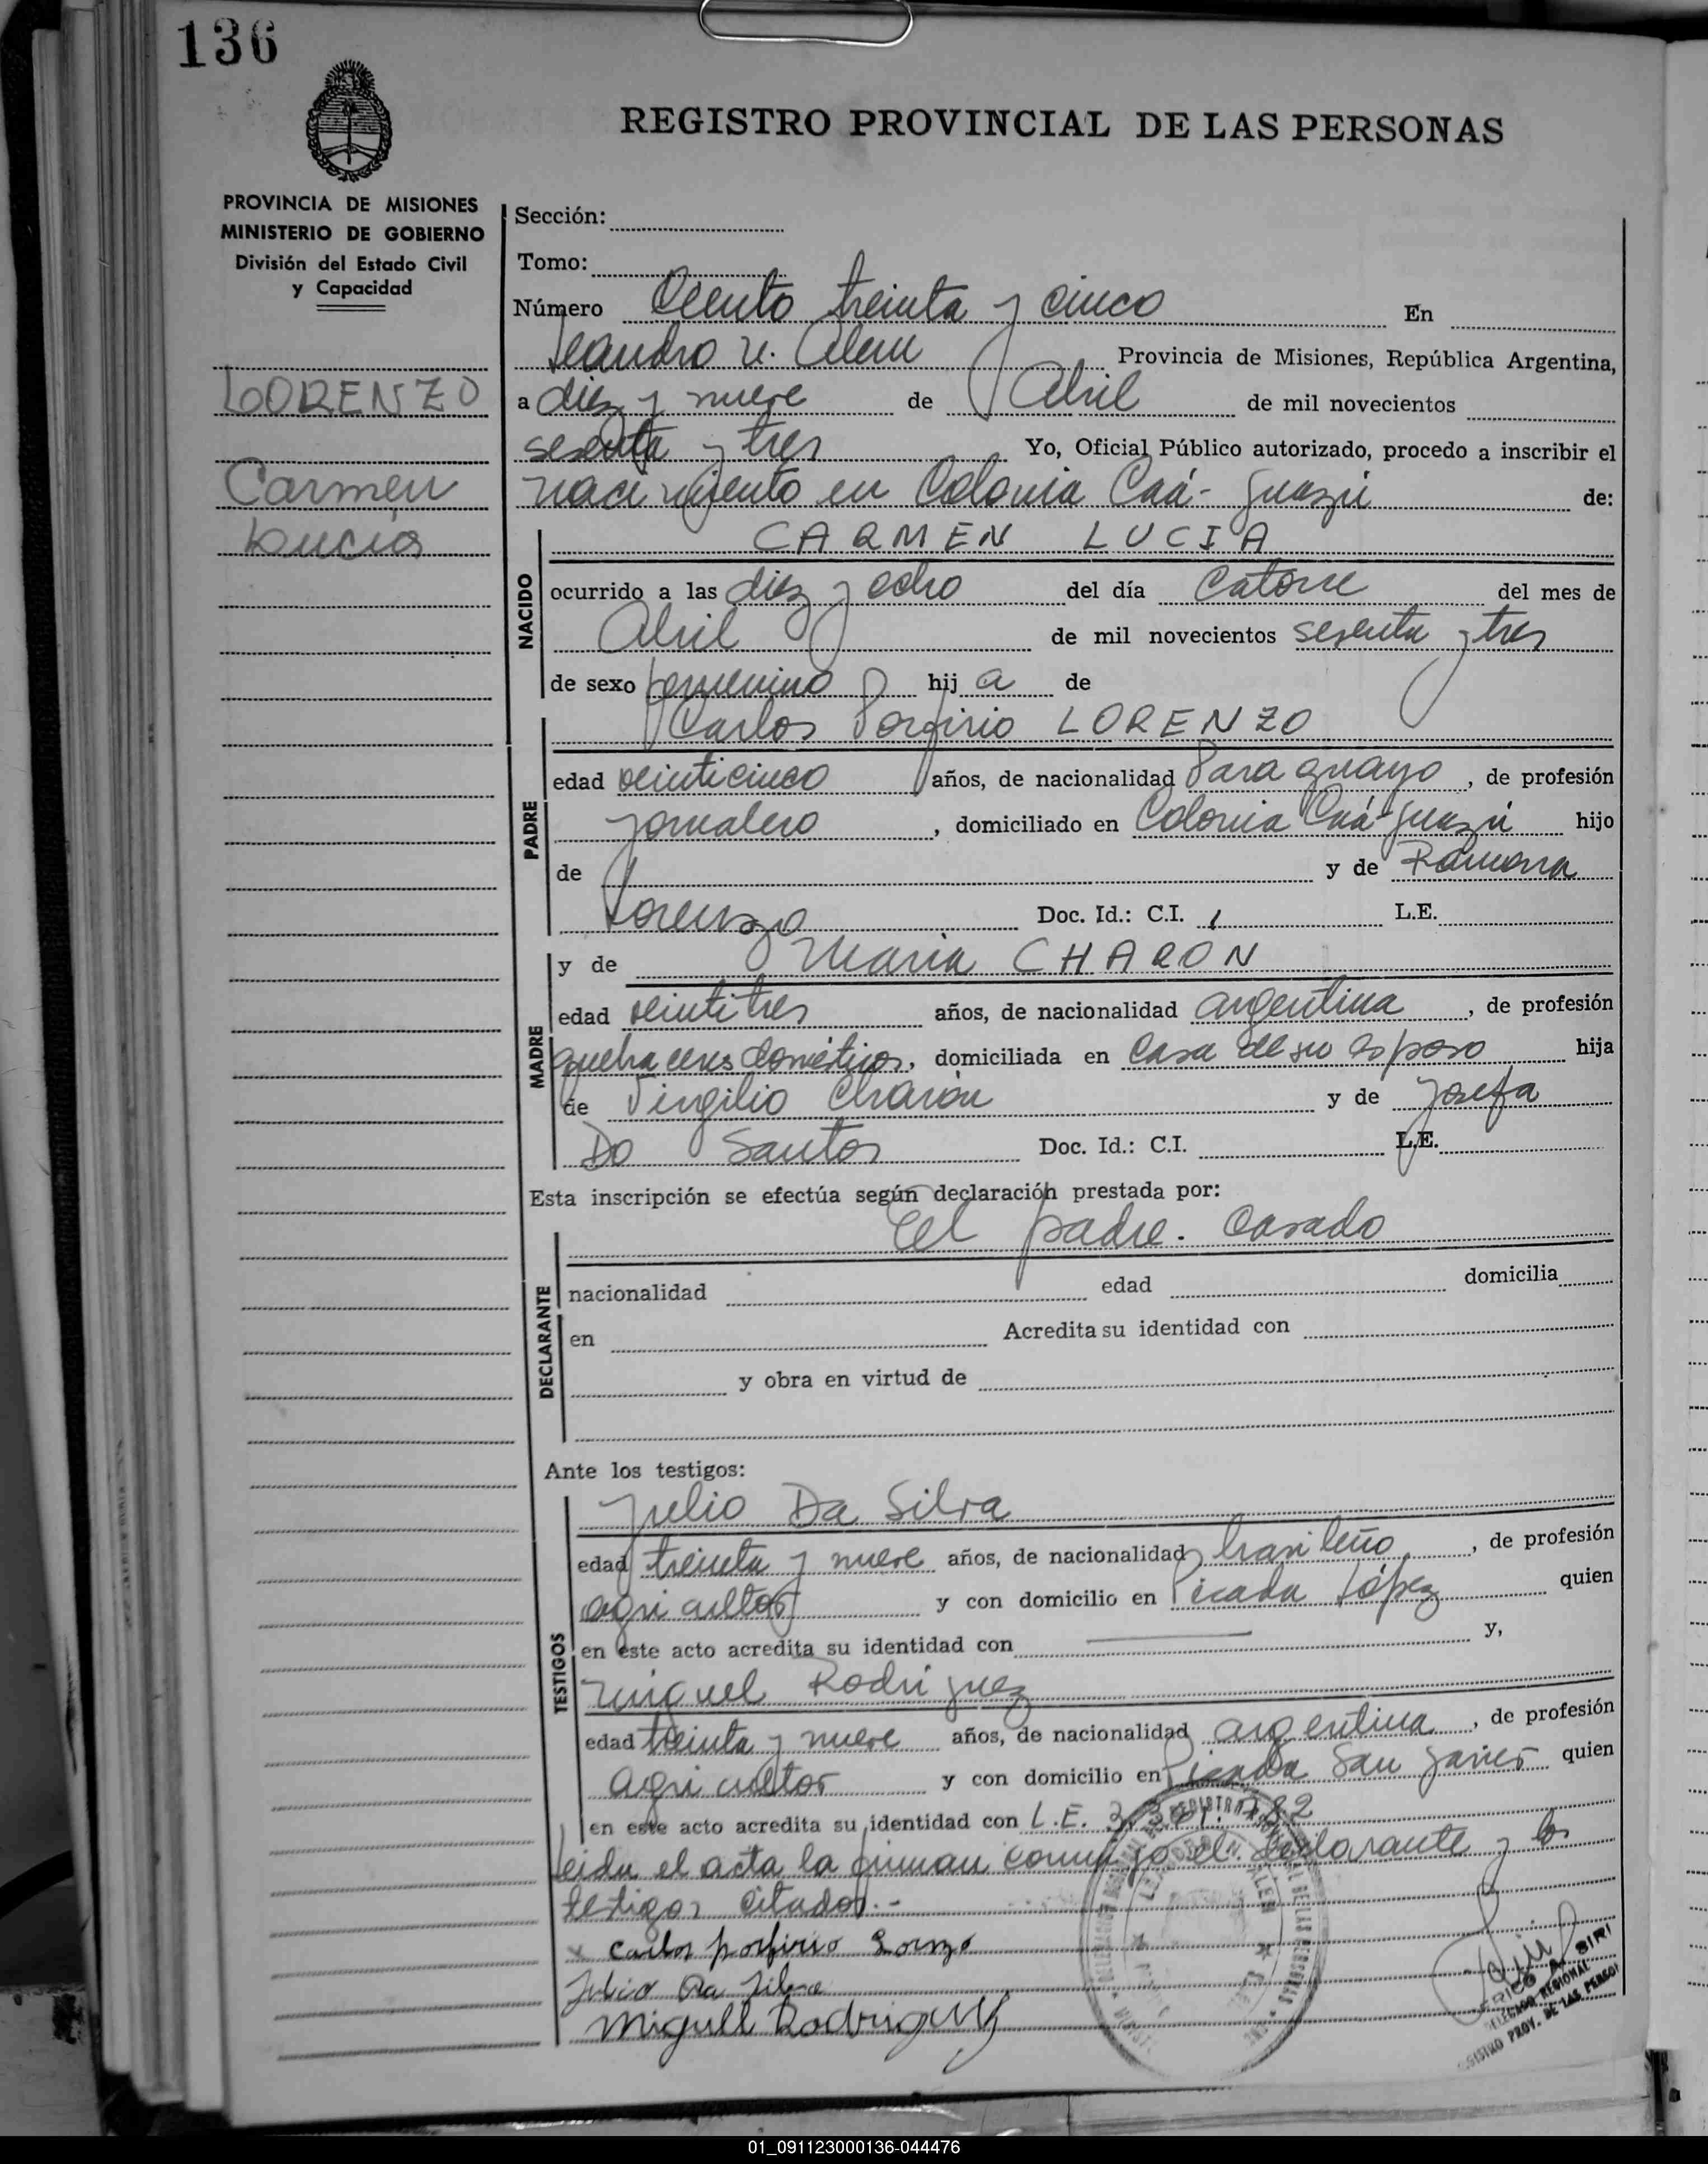 136
REGISTRO PROVINCIAL DE LAS PERSONAS
PROVINCIA DE MISIONES
MINISTERIO DE GOBIERNO
División del Estado Civil
y Capacidad
LORENZO
Carmen
Lucía
Sección:
Tomo:
Número Ciento treinta y cinco En
Leandro N. Alem Provincia de Misiones, República Argentina,
a diez y nueve de Abril de mil novecientos
sesenta y tres Yo, Oficial Público autorizado, procedo a inscribir el
nacimiento en Colonia Caá-Guazú de:
NACIDO
CARMEN LUCIA
ocurrido a las diez y ocho del día Catorce del mes de
Abril de mil novecientos sesenta y tres
de sexo femenino hij a de
PADRE
Carlos Porfirio LORENZO
edad veinticinco años, de nacionalidad Paraguayo, de profesión
Jornalero, domiciliado en Colonia Caá-Guazú hijo
de y de Ramona
Lorenzo Doc. Id.: C.I. L.E.
MADRE
y de Maria CHARON
edad veintitres años, de nacionalidad argentina, de profesión
quehaceres domésticos, domiciliada en Casa de su esposo hija
de Virgilio Charón y de Josefa
Do Santos Doc. Id.: C.I. L.E.
Esta inscripción se efectúa según declaración prestada por:
DECLARANTE
El padre. Casado
nacionalidad edad domicilia
en Acredita su identidad con
y obra en virtud de
Ante los testigos:
TESTIGOS
Julio Da Silva
edad treinta y nueve años, de nacionalidad brasileño, de profesión
agricultor y con domicilio en Picada López quien
en este acto acredita su identidad con y,
Miguel Rodriguez
edad treinta y nueve años, de nacionalidad argentina, de profesión
agricultor y con domicilio en Picada San Javier quien
en este acto acredita su identidad con L.E.
Leida el acta la firman conmigo el declarante y los
testigos citados.-
x Carlos porfirio Lorenzo
Julio Da Silva
Miguel Rodriguez
DELEGADO REGIONAL
REGISTRO PROV. DE LAS PERSO
01_091123000136-044476